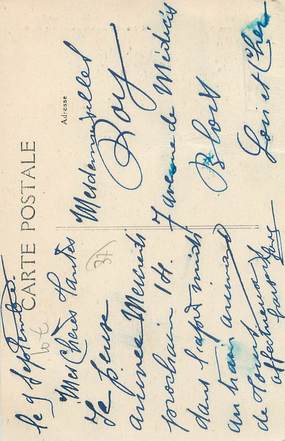 CARTE POSTALE
Adresse
le 9 Septembre
Mes Chères Tantes
Je pense
arriver Mercredi
prochain 14.
dans l'après midi
au train arrivant
de Tours
affectueux
Mesdemoiselles
Roy
7 avenue de Médicis
Blois
Loir et Cher
37